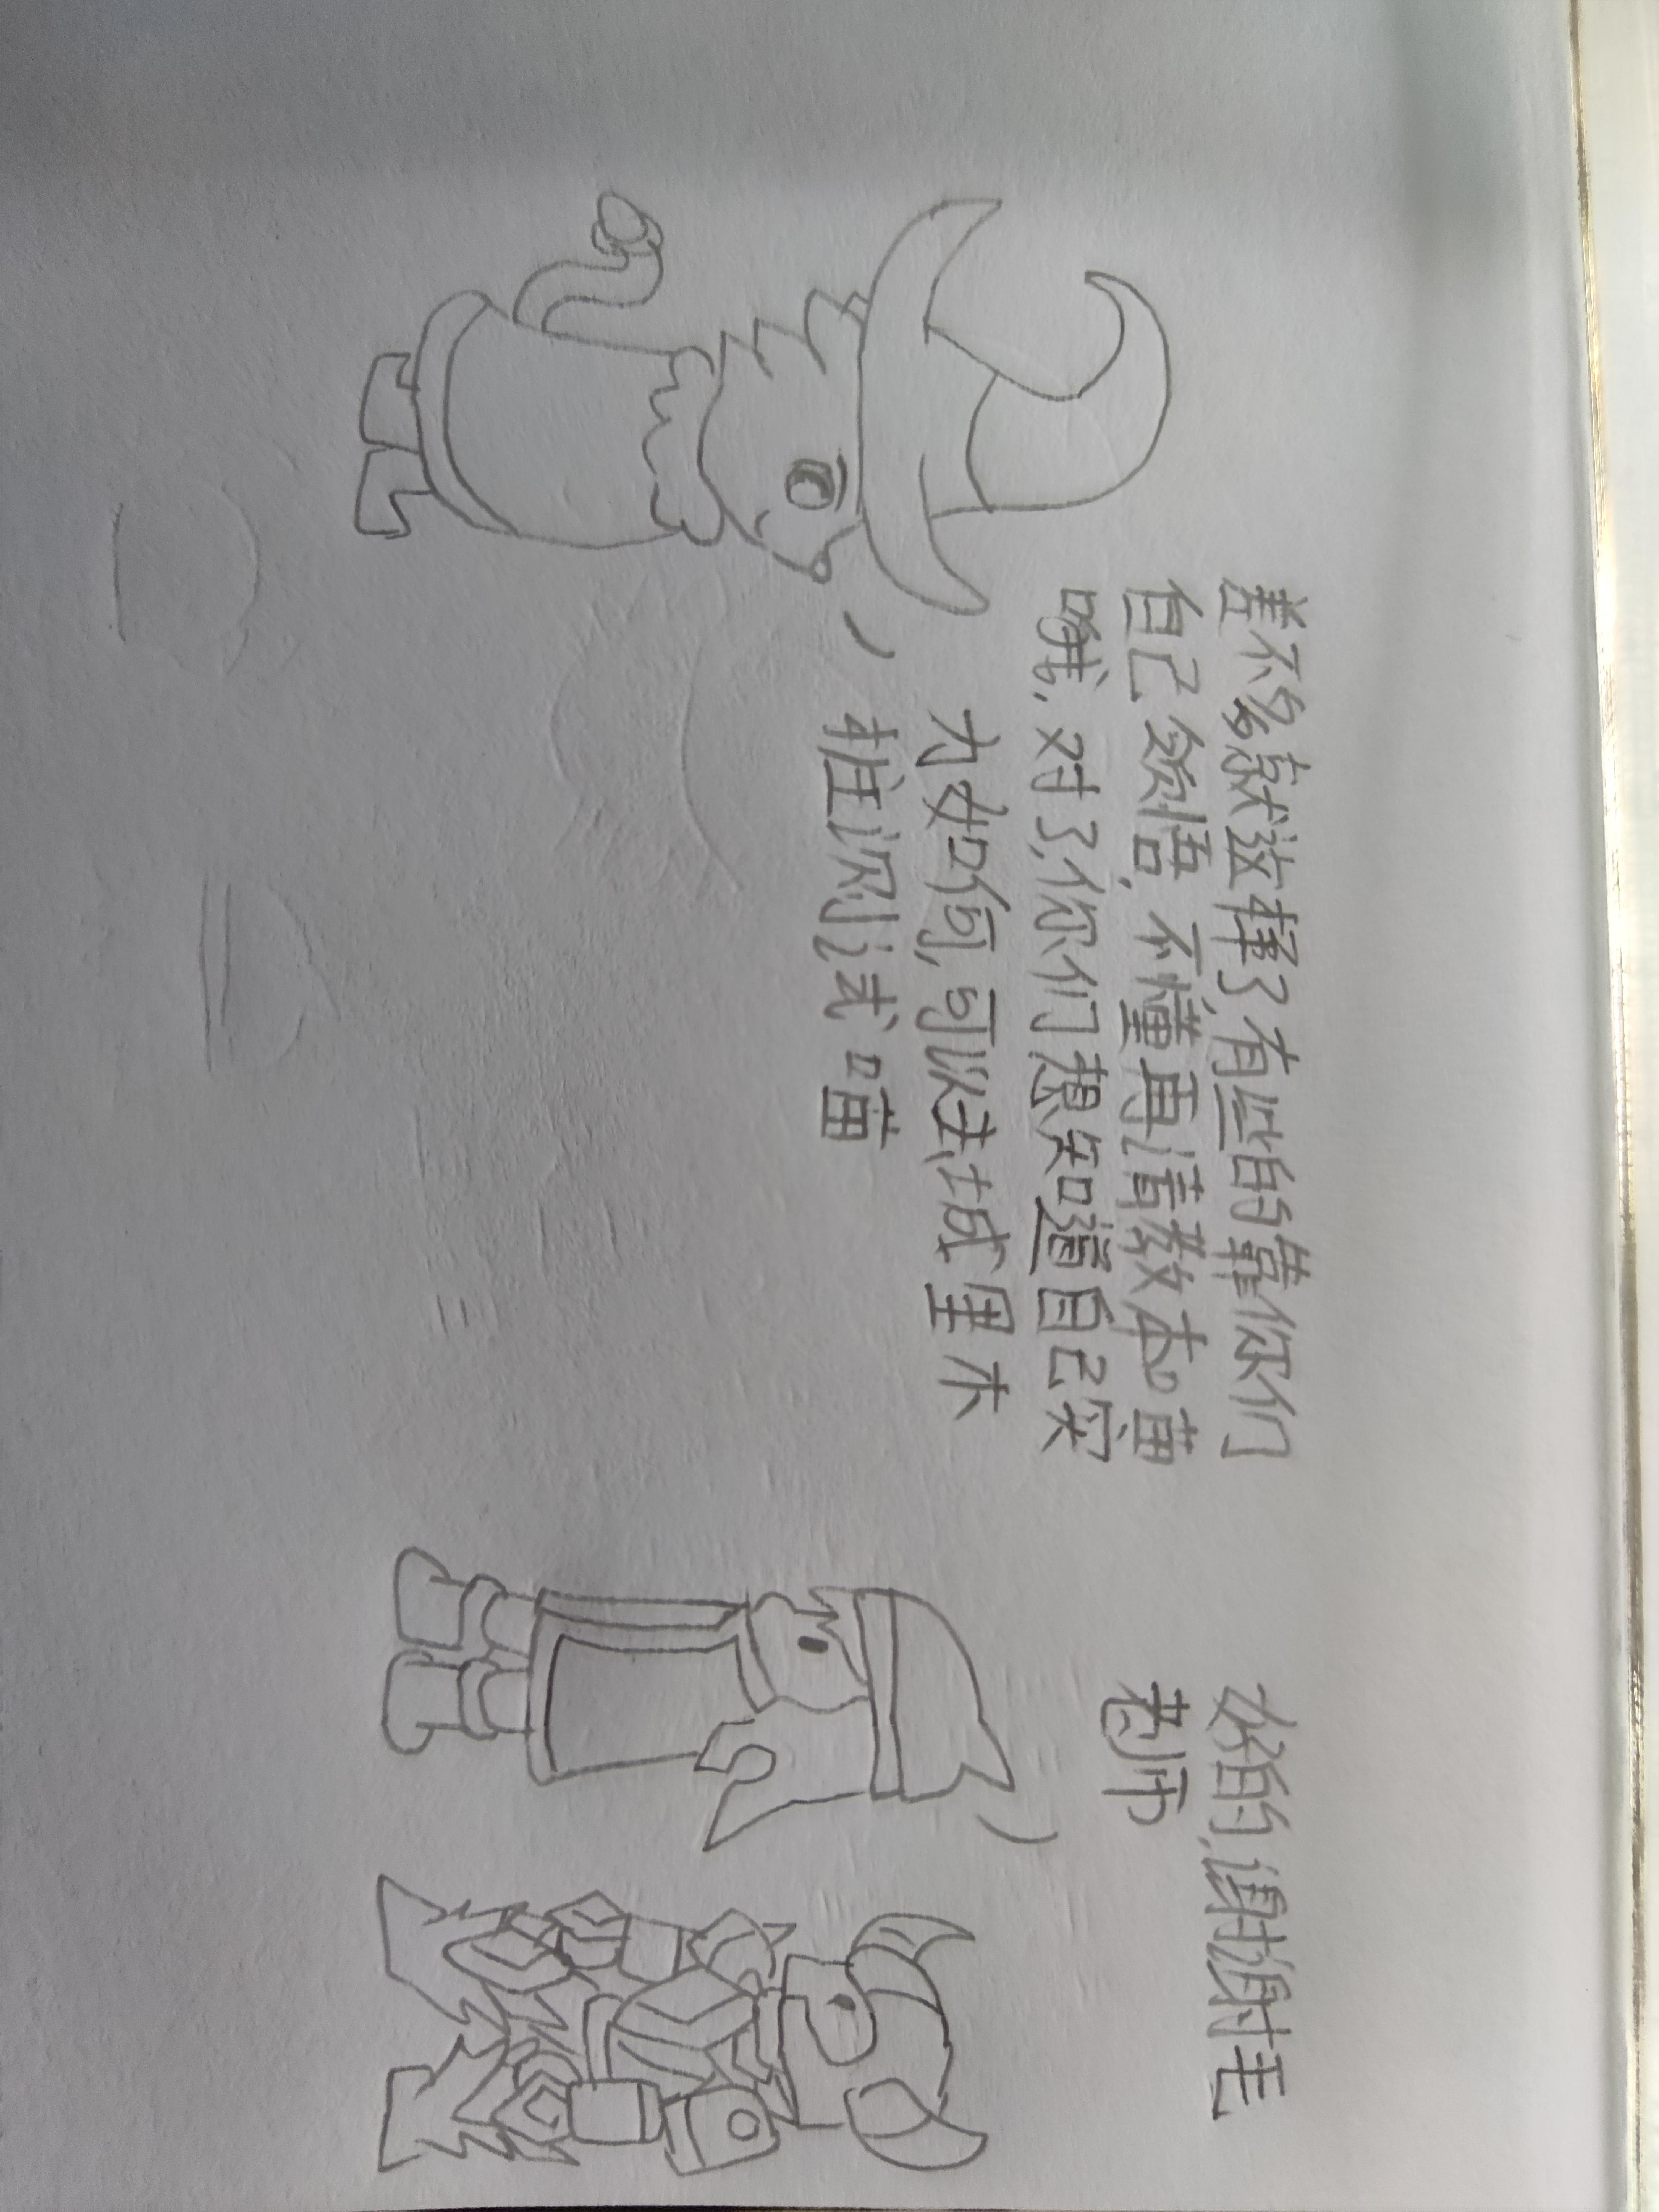 差不多就这样了有些的靠你们
自己领悟,不懂再请教本喵
哦,对了,你们想知道自己实
力如何,可以去城里木
桩测试喵
好的,谢谢毛
老师